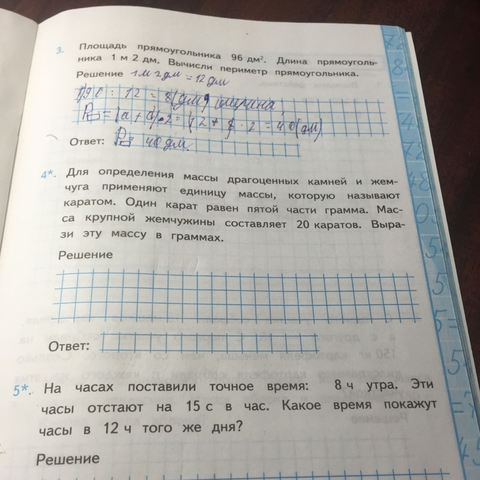 3. Площадь прямоугольника 96 дм². Длина прямоуголь-
ника 1 м 2 дм. Вычисли периметр прямоугольника.
Решение 1 м 2 дм = 12 дм
96 : 12 = 8 (дм) ширина
P = (a + b) · 2 = (12 + 8) · 2 = 40 (дм)
Ответ: P = 40 дм.
4*. Для определения массы драгоценных камней и жем-
чуга применяют единицу массы, которую называют
каратом. Один карат равен пятой части грамма. Мас-
са крупной жемчужины составляет 20 каратов. Выра-
зи эту массу в граммах.
Решение
Ответ:
5*. На часах поставили точное время: 8 ч утра. Эти
часы отстают на 15 с в час. Какое время покажут
часы в 12 ч того же дня?
Решение